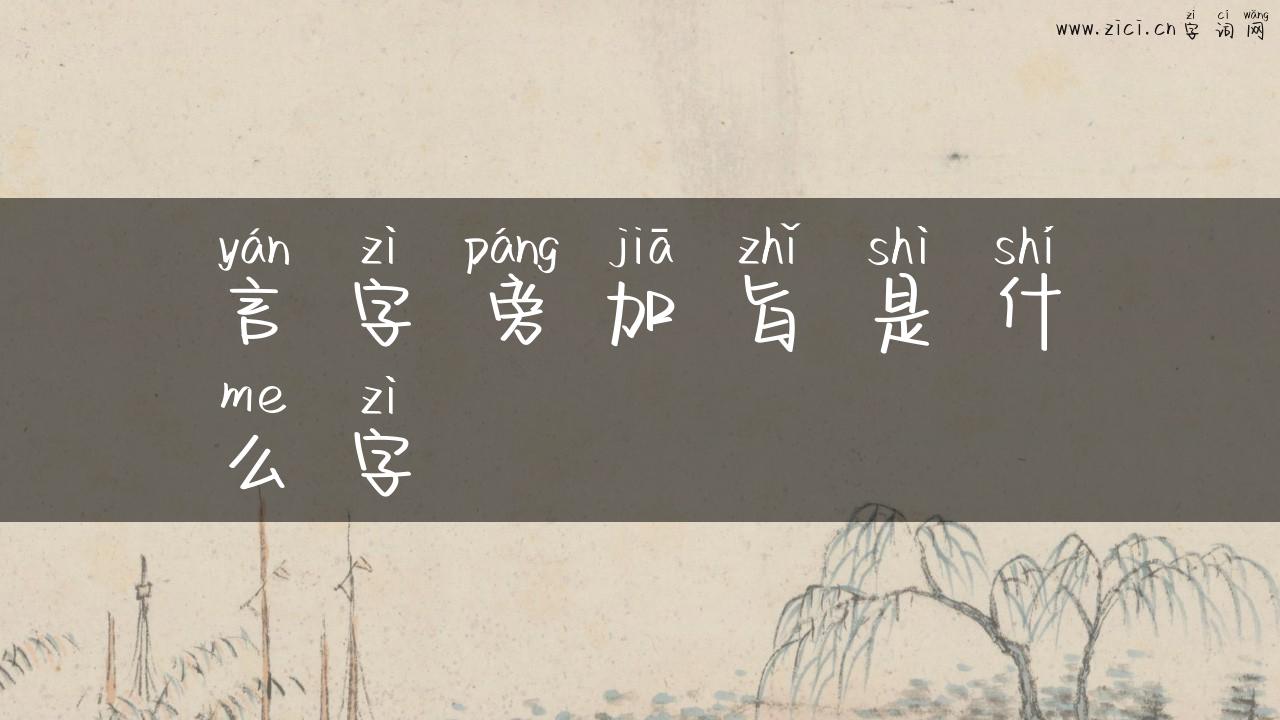 zì cí wǎng
www.zici.cn 字词网
yán zì páng jiā zhǐ shì shí
言字旁加旨是什
me zì
么字